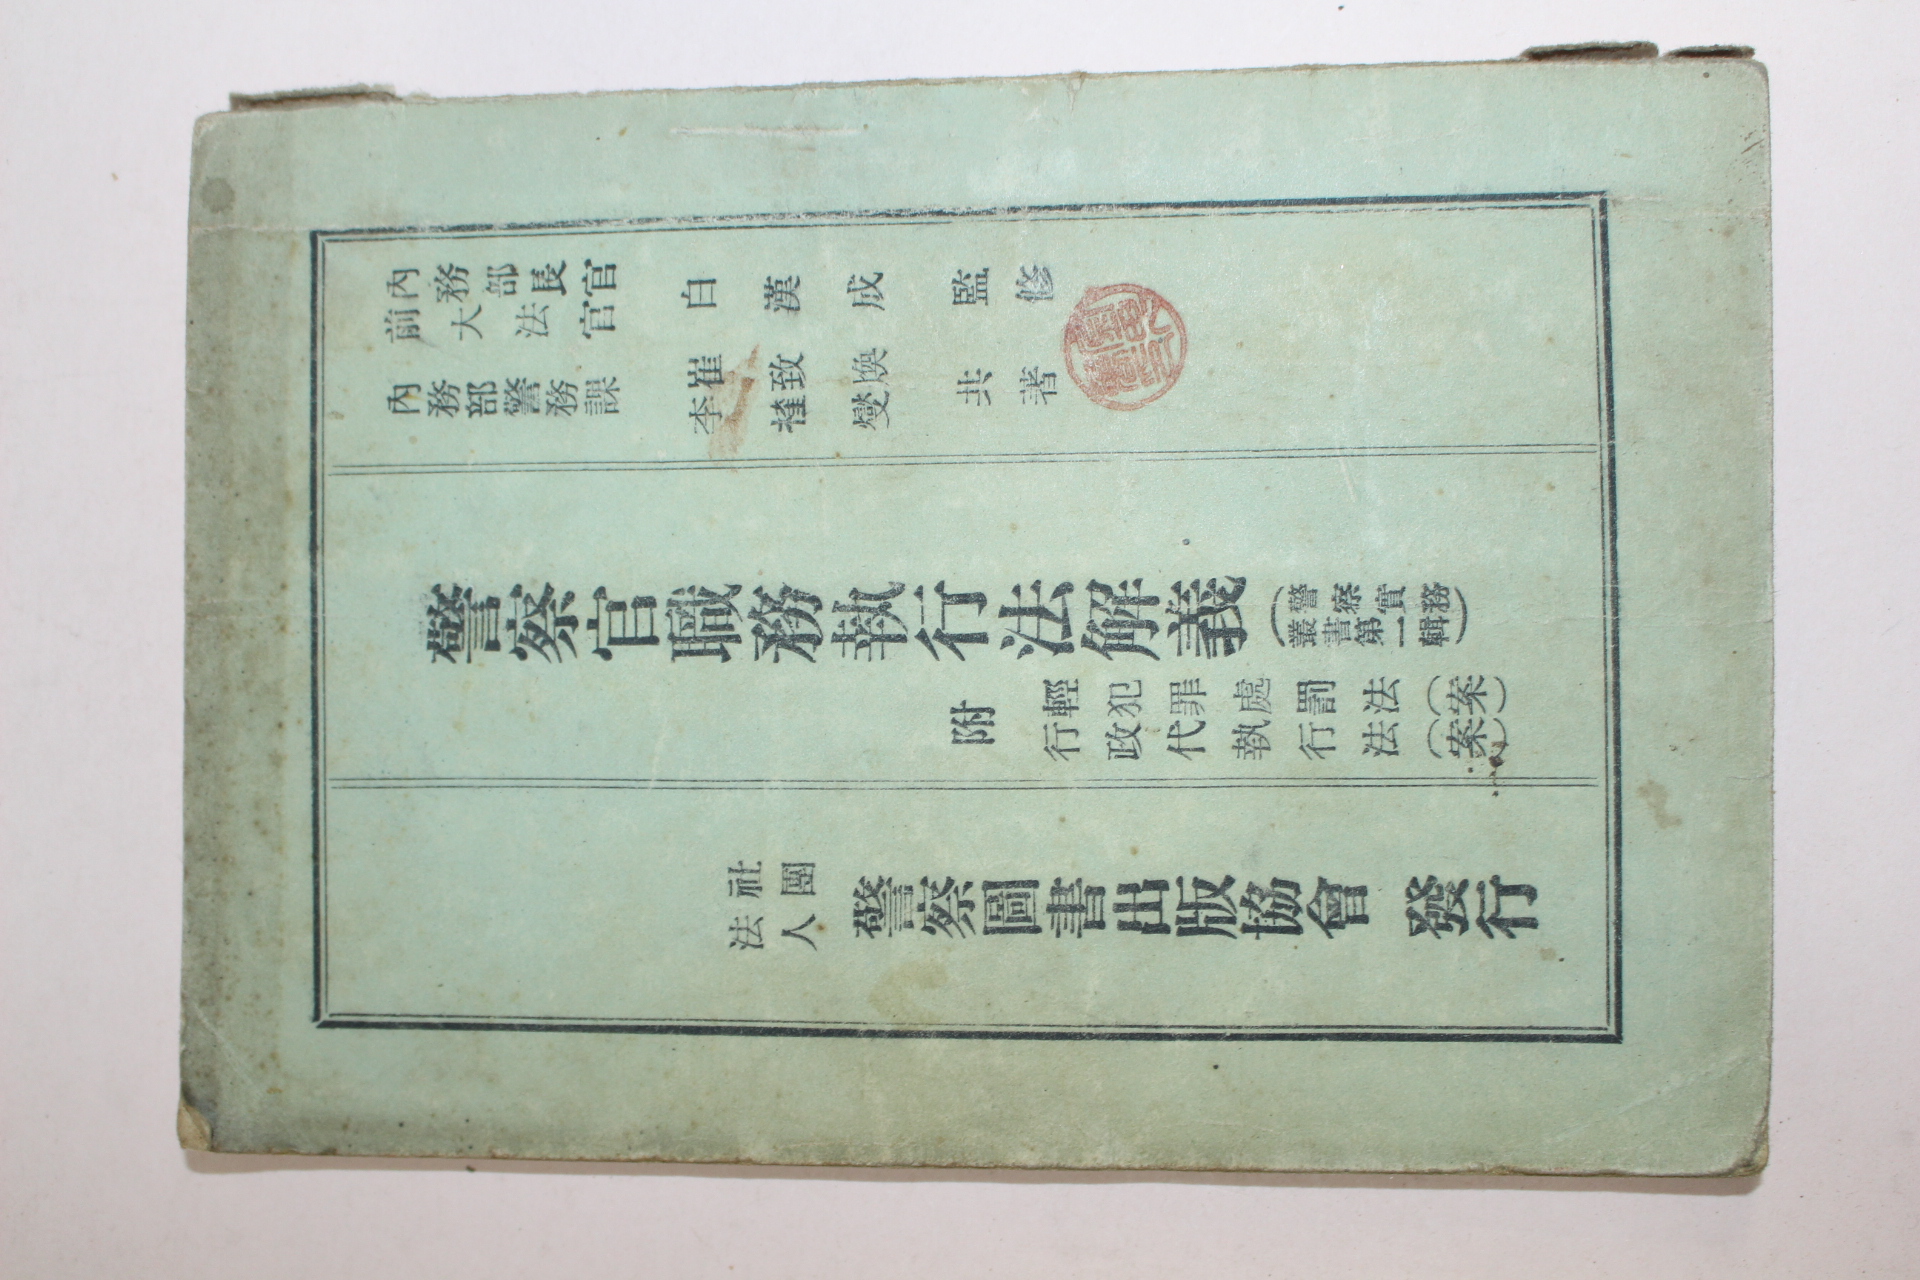 內務部長官
前大法官
白漢成 監修
內務部警務課
崔致煥
李 燮
共著
警察官職務執行法解義
(警察實務
叢書第一輯)
附
輕犯罪處罰法(案)
行政代執行法(案)
社團
法人
警察圖書出版協會 發行